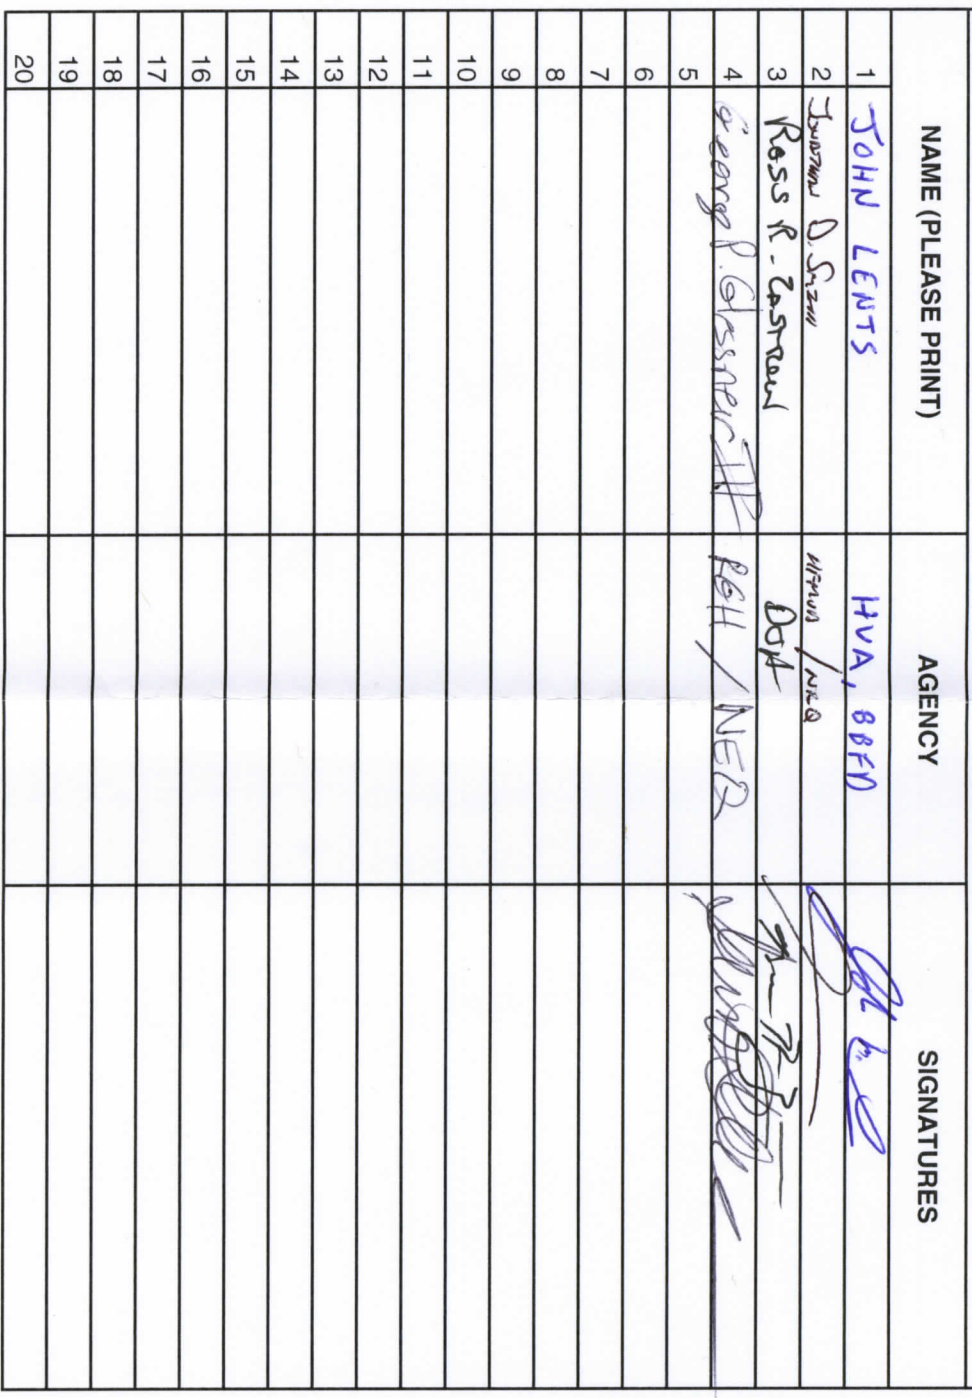 NAME (PLEASE PRINT) AGENCY SIGNATURES
1 JOHN LENTS HVA, BBFD
2 JONATHAN D. SMITH /NEQ
3 ROSS R. ZASTROW DOJA
4 George P. Glassner IV PGH / NEQ
5
6
7
8
9
10
11
12
13
14
15
16
17
18
19
20